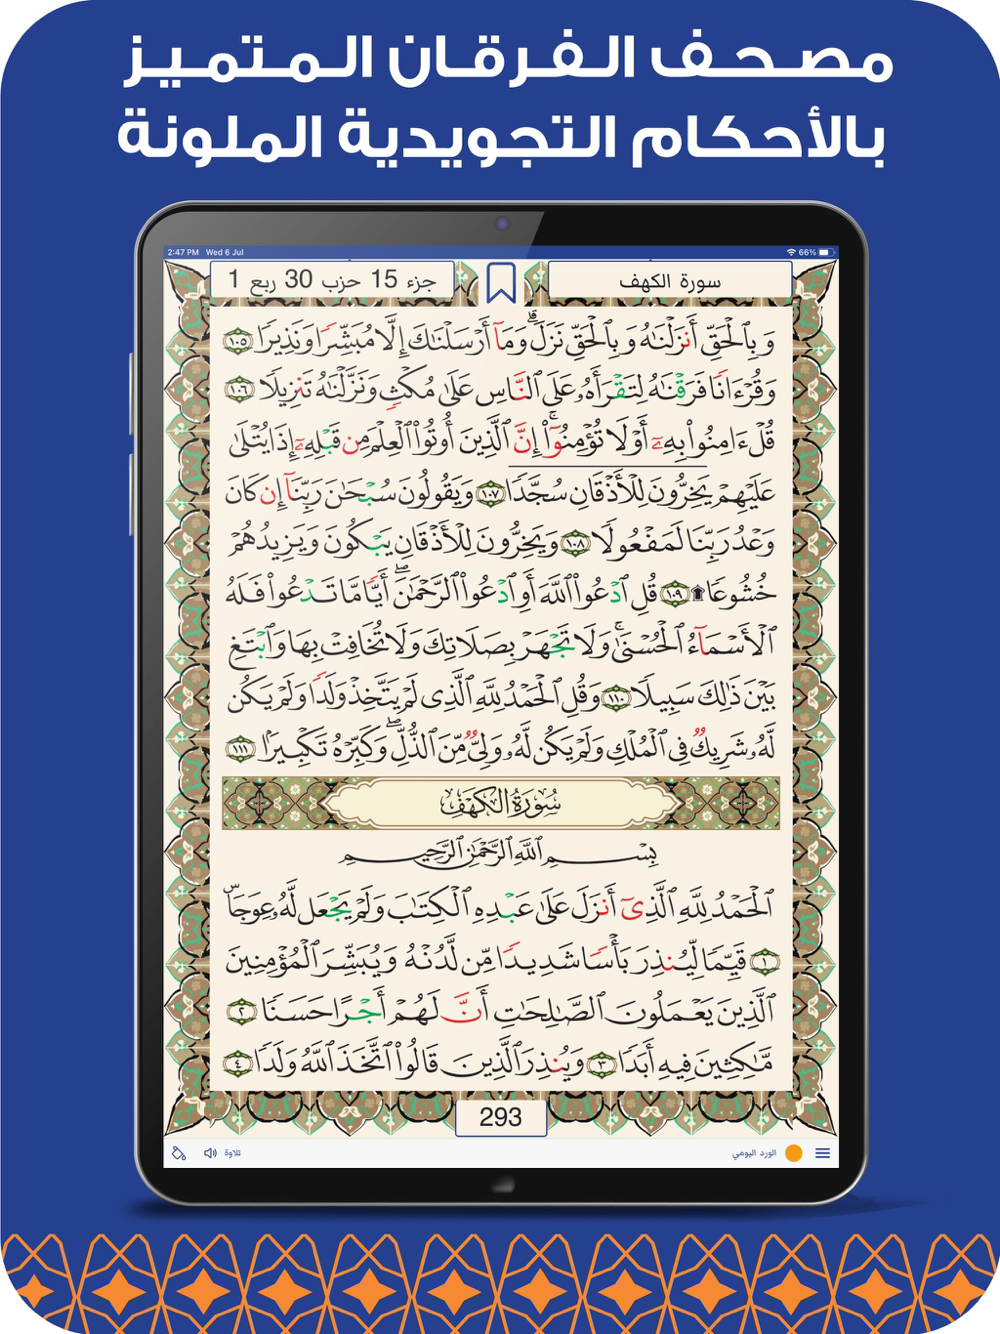 مصحف الفرقان المتميز
بالأحكام التجويدية الملونة
2:47 PM Wed 6 Jul 66%
سورة الكهف
جزء 15 حزب 30 ربع 1
وَبِٱلْحَقِّ أَنزَلْنَٰهُ وَبِٱلْحَقِّ نَزَلَ ۗ وَمَآ أَرْسَلْنَٰكَ إِلَّا مُبَشِّرًا وَنَذِيرًا ١٠٥
وَقُرْءَانًا فَرَقْنَٰهُ لِتَقْرَأَهُۥ عَلَى ٱلنَّاسِ عَلَىٰ مُكْثٍ وَنَزَّلْنَٰهُ تَنزِيلًا ١٠٦
قُلْ ءَامِنُوا۟ بِهِۦٓ أَوْ لَا تُؤْمِنُوٓا۟ ۚ إِنَّ ٱلَّذِينَ أُوتُوا۟ ٱلْعِلْمَ مِن قَبْلِهِۦٓ إِذَا يُتْلَىٰ
عَلَيْهِمْ يَخِرُّونَ لِلْأَذْقَانِ سُجَّدًا ١٠٧ وَيَقُولُونَ سُبْحَٰنَ رَبِّنَآ إِن كَانَ
وَعْدُ رَبِّنَا لَمَفْعُولًا ١٠٨ وَيَخِرُّونَ لِلْأَذْقَانِ يَبْكُونَ وَيَزِيدُهُمْ
خُشُوعًا ۩ ١٠٩ قُلِ ٱدْعُوا۟ ٱللَّهَ أَوِ ٱدْعُوا۟ ٱلرَّحْمَٰنَ ۖ أَيًّا مَّا تَدْعُوا۟ فَلَهُ
ٱلْأَسْمَآءُ ٱلْحُسْنَىٰ ۚ وَلَا تَجْهَرْ بِصَلَاتِكَ وَلَا تُخَافِتْ بِهَا وَٱبْتَغِ
بَيْنَ ذَٰلِكَ سَبِيلًا ١١٠ وَقُلِ ٱلْحَمْدُ لِلَّهِ ٱلَّذِى لَمْ يَتَّخِذْ وَلَدًا وَلَمْ يَكُن
لَّهُۥ شَرِيكٌ فِى ٱلْمُلْكِ وَلَمْ يَكُن لَّهُۥ وَلِىٌّ مِّنَ ٱلذُّلِّ ۖ وَكَبِّرْهُ تَكْبِيرًۢا ١١١
سُورَةُ الكَهْفِ
بِسْمِ ٱللَّهِ ٱلرَّحْمَٰنِ ٱلرَّحِيمِ
ٱلْحَمْدُ لِلَّهِ ٱلَّذِىٓ أَنزَلَ عَلَىٰ عَبْدِهِ ٱلْكِتَٰبَ وَلَمْ يَجْعَل لَّهُۥ عِوَجَا ۜ
١ قَيِّمًا لِّيُنذِرَ بَأْسًا شَدِيدًا مِّن لَّدُنْهُ وَيُبَشِّرَ ٱلْمُؤْمِنِينَ
ٱلَّذِينَ يَعْمَلُونَ ٱلصَّٰلِحَٰتِ أَنَّ لَهُمْ أَجْرًا حَسَنًا ٢
مَّٰكِثِينَ فِيهِ أَبَدًا ٣ وَيُنذِرَ ٱلَّذِينَ قَالُوا۟ ٱتَّخَذَ ٱللَّهُ وَلَدًا ٤
293
الورد اليومي
تلاوة